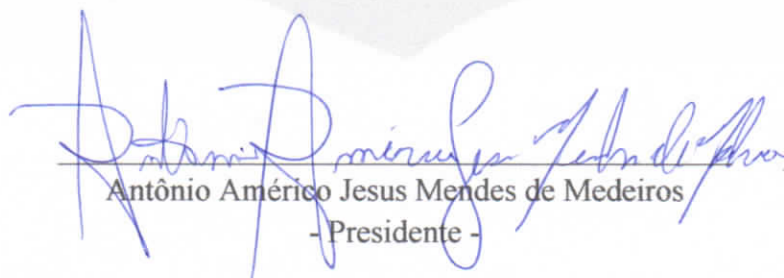 Antônio Américo Jesus Mendes de Medeiros
- Presidente -